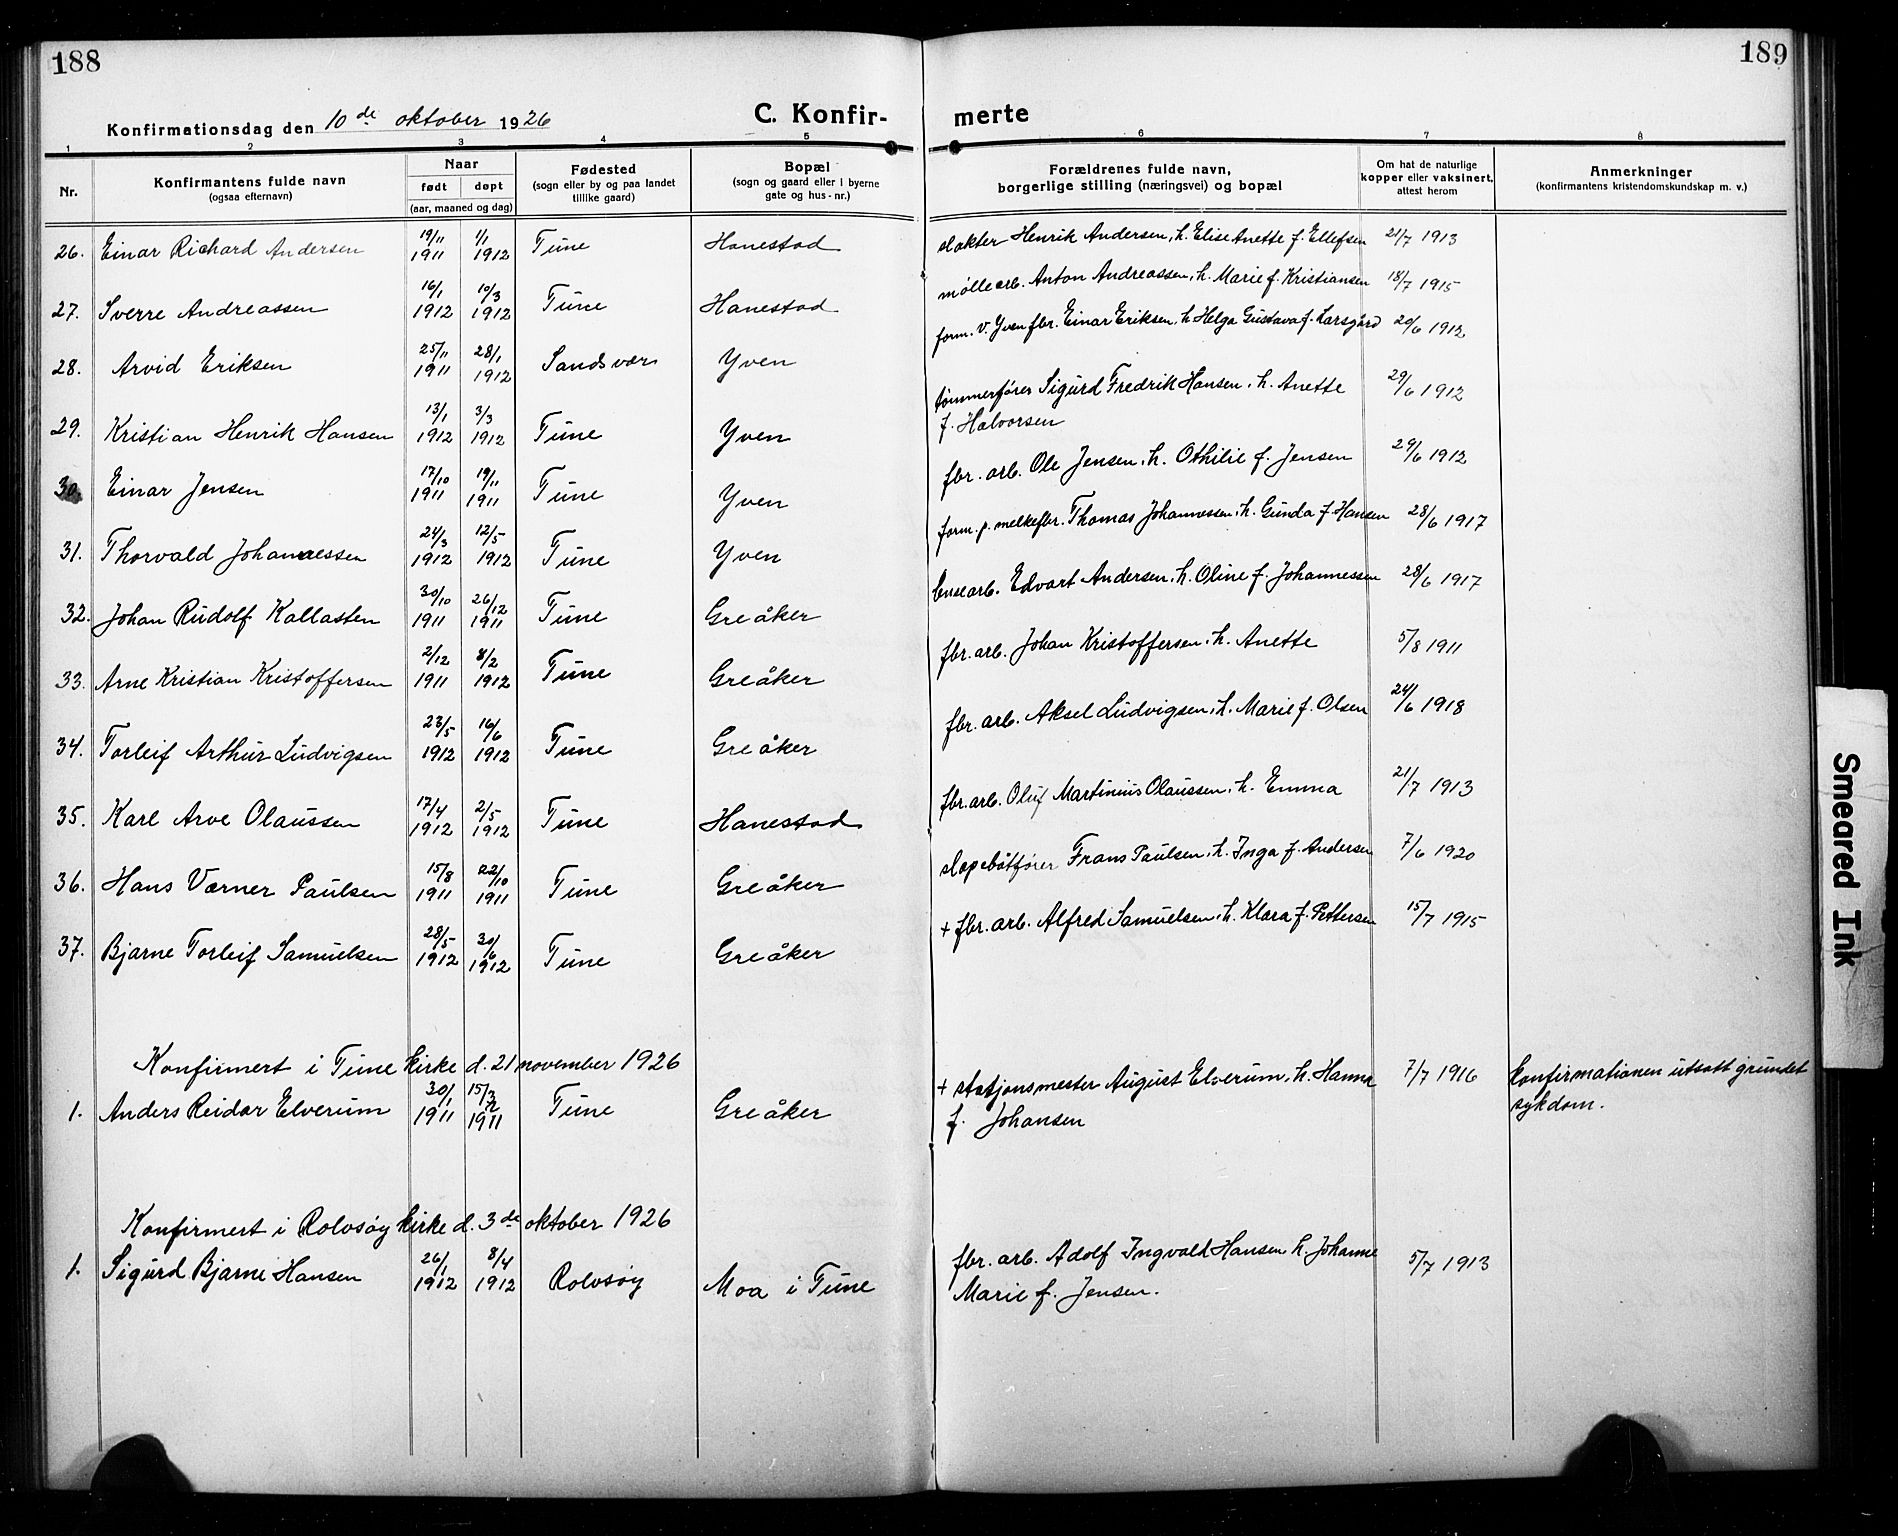 188
189
Konfirmationsdag den 10de oktober 1926
C. Konfir-
merte
1 2 3 4 5 6 7 8
Nr.
Konfirmantens fulde navn
(ogsaa efternavn)
Naar
født døpt
(aar, maaned og dag)
Fødested
(sogn eller by og paa landet
tillike gaard)
Bopæl
(sogn og gaard eller i byerne
gate og hus-nr.)
Forældrenes fulde navn,
borgerlige stilling (næringsvei) og bopæl
Om hat de naturlige
kopper eller vaksinert,
attest herom
Anmerkninger
(konfirmantens kristendomskundskap m. v.)
26. Einar Richard Andersen 19/11 1911 1/1 1912 Tune Hanestad slakter Henrik Andersen, h. Elise Anette f. Ellefsen 21/7 1913
27. Sverre Andreassen 16/1 1912 10/3 1912 Tune Hanestad møllearb. Anton Andreassen, h. Marie f. Kristiansen 18/7 1915
28. Arvid Eriksen 25/11 1911 28/1 1912 Sandsvær Yven form. v. Yven fbr. Einar Eriksen, h. Helga Gustava f. Larsgård 20/6 1912
29. Kristian Henrik Hansen 13/1 1912 3/3 1912 Tune Yven tømmerfører Sigurd Fredrik Hansen, h. Anette 29/6 1912
f. Halvorsen
30. Einar Jensen 17/10 1911 19/11 1911 Tune Yven fbr. arb. Ole Jensen, h. Othilie f. Jensen 29/6 1912
31. Thorvald Johannessen 24/3 1912 12/5 1912 Tune Yven form. p. melkefbr. Thomas Johannessen, h. Gunda f. Hansen 28/6 1917
32. Johan Rudolf Kallasten 30/10 1911 26/12 1911 Tune Greåker Edvart Andersen, h. Oline f. Johannessen 28/6 1917
33. Arne Kristian Kristoffersen 2/12 1911 8/2 1912 Tune Greåker fbr. arb. Johan Kristoffersen, h. Anette 5/8 1911
34. Torleif Arthur Ludvigsen 23/5 1912 16/6 1912 Tune Greåker fbr. arb. Aksel Ludvigsen, h. Marie f. Olsen 24/6 1918
35. Karl Arve Olaussen 17/4 1912 2/5 1912 Tune Hanestad fbr. arb. Oluf Martinius Olaussen, h. Emma 21/7 1913
36. Hans Værner Paulsen 15/8 1911 22/10 1911 Tune Greåker slæpebåtfører Frans Paulsen, h. Inga f. Andersen 7/6 1920
37. Bjarne Torleif Samuelsen 28/5 1912 30/6 1912 Tune Greåker + fbr. arb. Alfred Samuelsen, h. Klara f. Pettersen 15/7 1915
Konfirmert i Tune kirke d. 21 november 1926
1. Anders Reidar Elverum 30/1 1911 15/3 1911 Tune Greåker + stasjonsmester August Elverum, h. Hanna 7/7 1916 konfirmationen utsatt grundet
f. Johansen sykdom.
Konfirmert i Rolvsøy kirke d. 3de oktober 1926
1. Sigurd Bjarne Hansen 26/1 1912 8/4 1912 Rolvsøy Moa i Tune fbr. arb. Adolf Ingvald Hansen h. Johanne 5/7 1913
Marie f. Jensen.
Smeared Ink